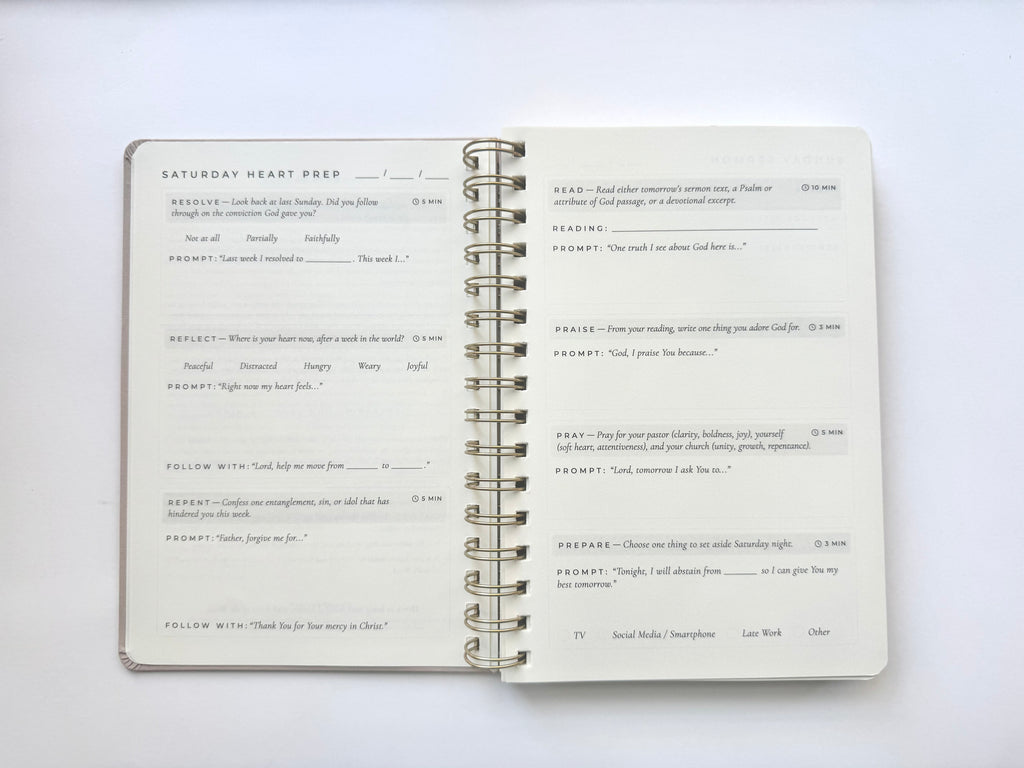 SATURDAY HEART PREP ____ / ____ / ____
RESOLVE — Look back at last Sunday. Did you follow 5 MIN
through on the conviction God gave you?
Not at all Partially Faithfully
PROMPT: “Last week I resolved to __________. This week I...”
REFLECT — Where is your heart now, after a week in the world? 5 MIN
Peaceful Distracted Hungry Weary Joyful
PROMPT: “Right now my heart feels...”
FOLLOW WITH: “Lord, help me move from _______ to _______.”
REPENT — Confess one entanglement, sin, or idol that has 5 MIN
hindered you this week.
PROMPT: “Father, forgive me for...”
FOLLOW WITH: “Thank You for Your mercy in Christ.”
READ — Read either tomorrow's sermon text, a Psalm or 10 MIN
attribute of God passage, or a devotional excerpt.
READING: ______________________________
PROMPT: “One truth I see about God here is...”
PRAISE — From your reading, write one thing you adore God for. 3 MIN
PROMPT: “God, I praise You because...”
PRAY — Pray for your pastor (clarity, boldness, joy), yourself 5 MIN
(soft heart, attentiveness), and your church (unity, growth, repentance).
PROMPT: “Lord, tomorrow I ask You to...”
PREPARE — Choose one thing to set aside Saturday night. 3 MIN
PROMPT: “Tonight, I will abstain from _______ so I can give You my
best tomorrow.”
TV Social Media / Smartphone Late Work Other